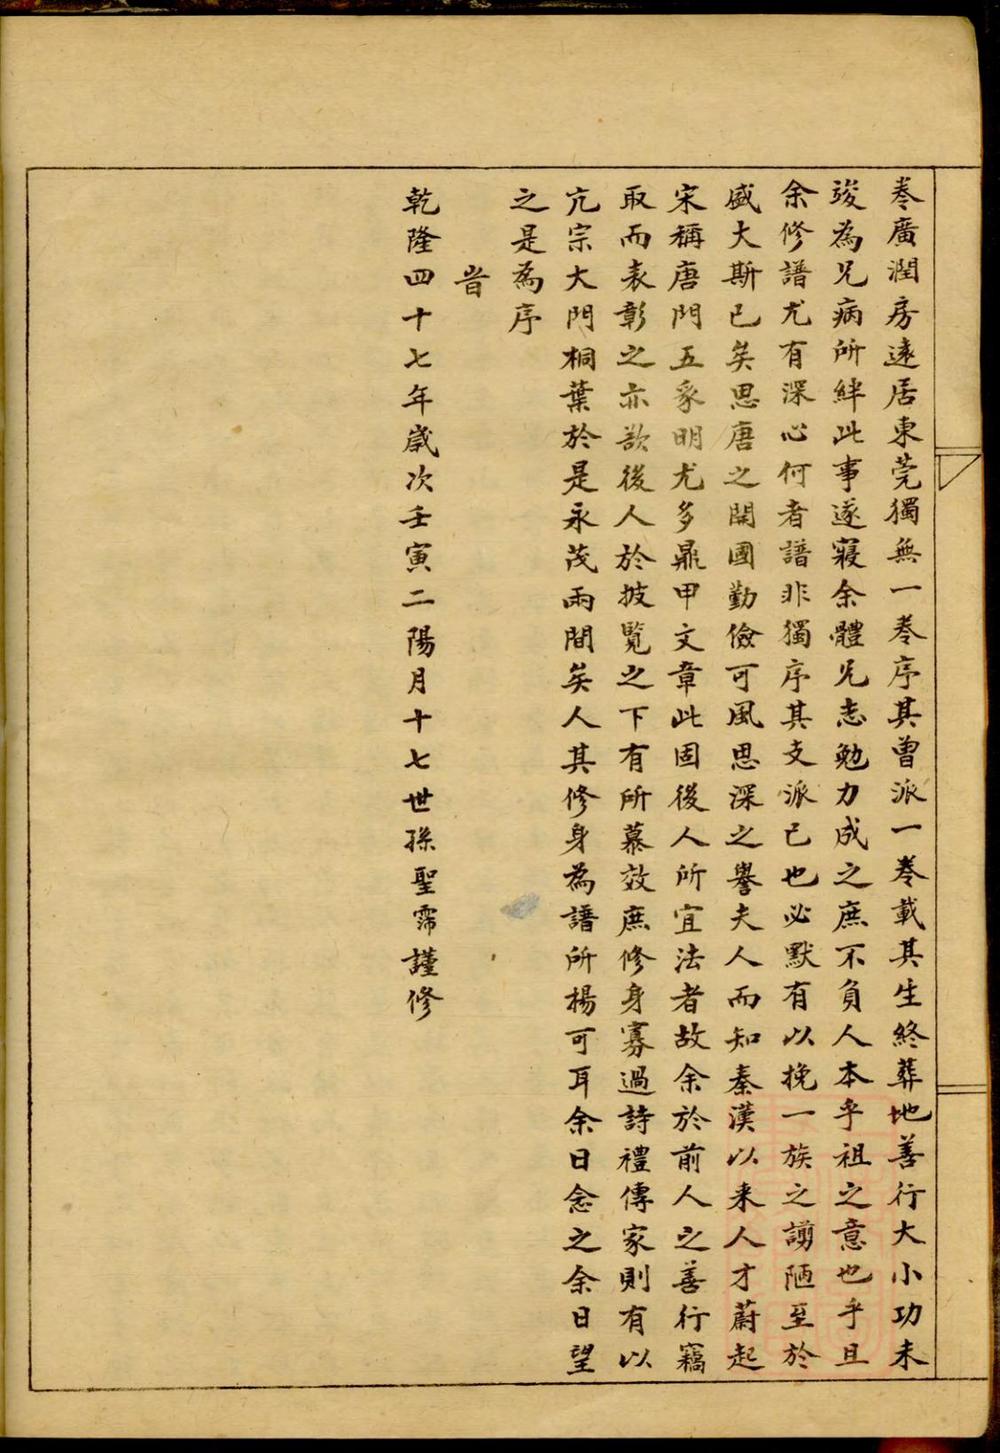 卷廣潤房遠居東莞獨無一卷序其曾派一卷載其生終葬地善行大小功未
竣為兄病所絆此事遂寢余體兄志勉力成之庶不負人本乎祖之意也乎且
余修譜尤有深心何者譜非獨序其支派已也必默有以挽一族之謭陋至於
盛大斯已矣思唐之開國勤儉可風思深之譽夫人而知秦漢以来人才蔚起
宋稱唐門五豸明尤多鼎甲文章此固後人所宜法者故余於前人之善行竊
取而表彰之亦欲後人於披覧之下有所慕效庶修身寡過詩禮傳家則有以
亢宗大門桐葉於是永茂兩間矣人其修身為譜所楊可耳余日念之余日望
之是為序
旹
乾隆四十七年歲次壬寅二陽月十七世孫聖霈謹修